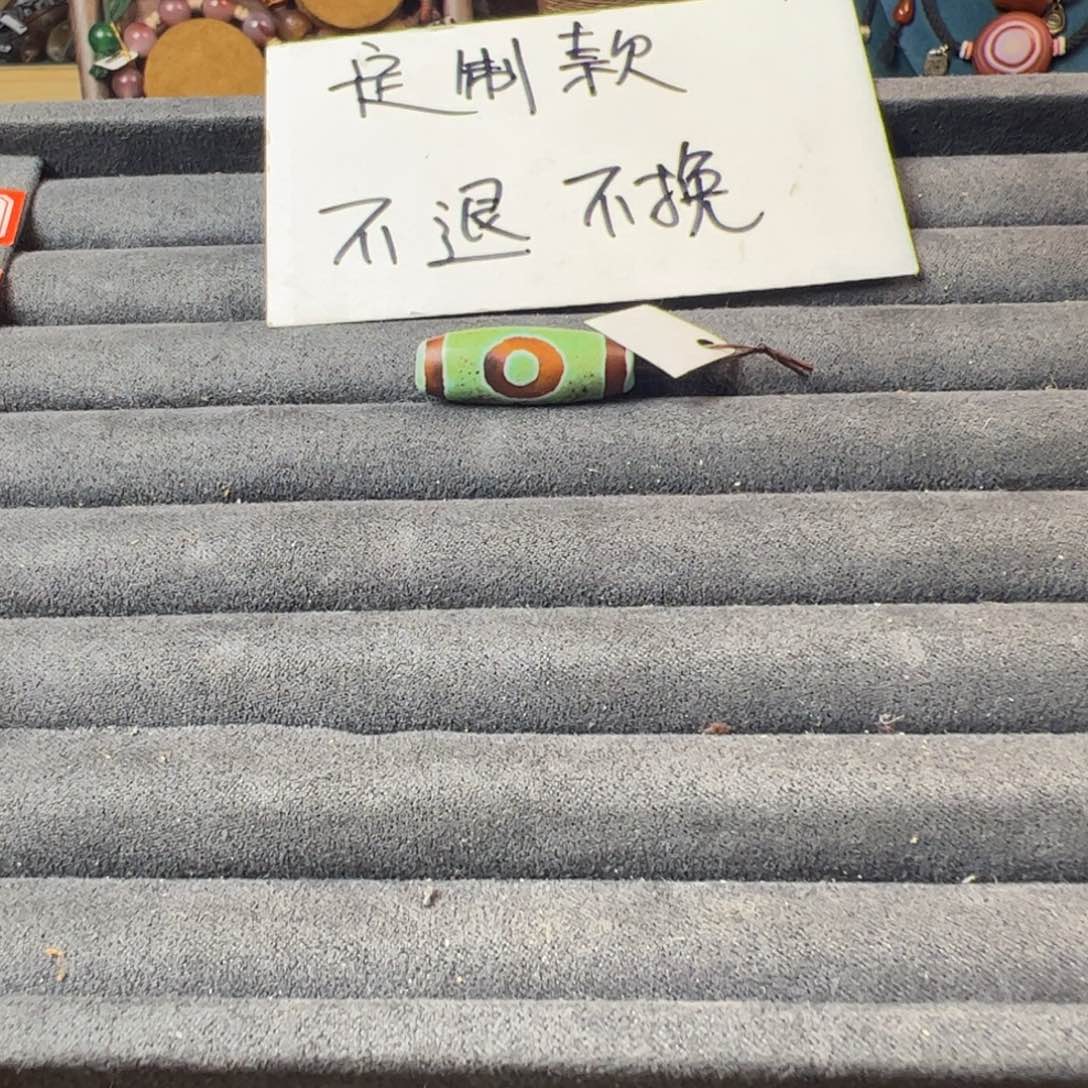 定制款
不退不挽